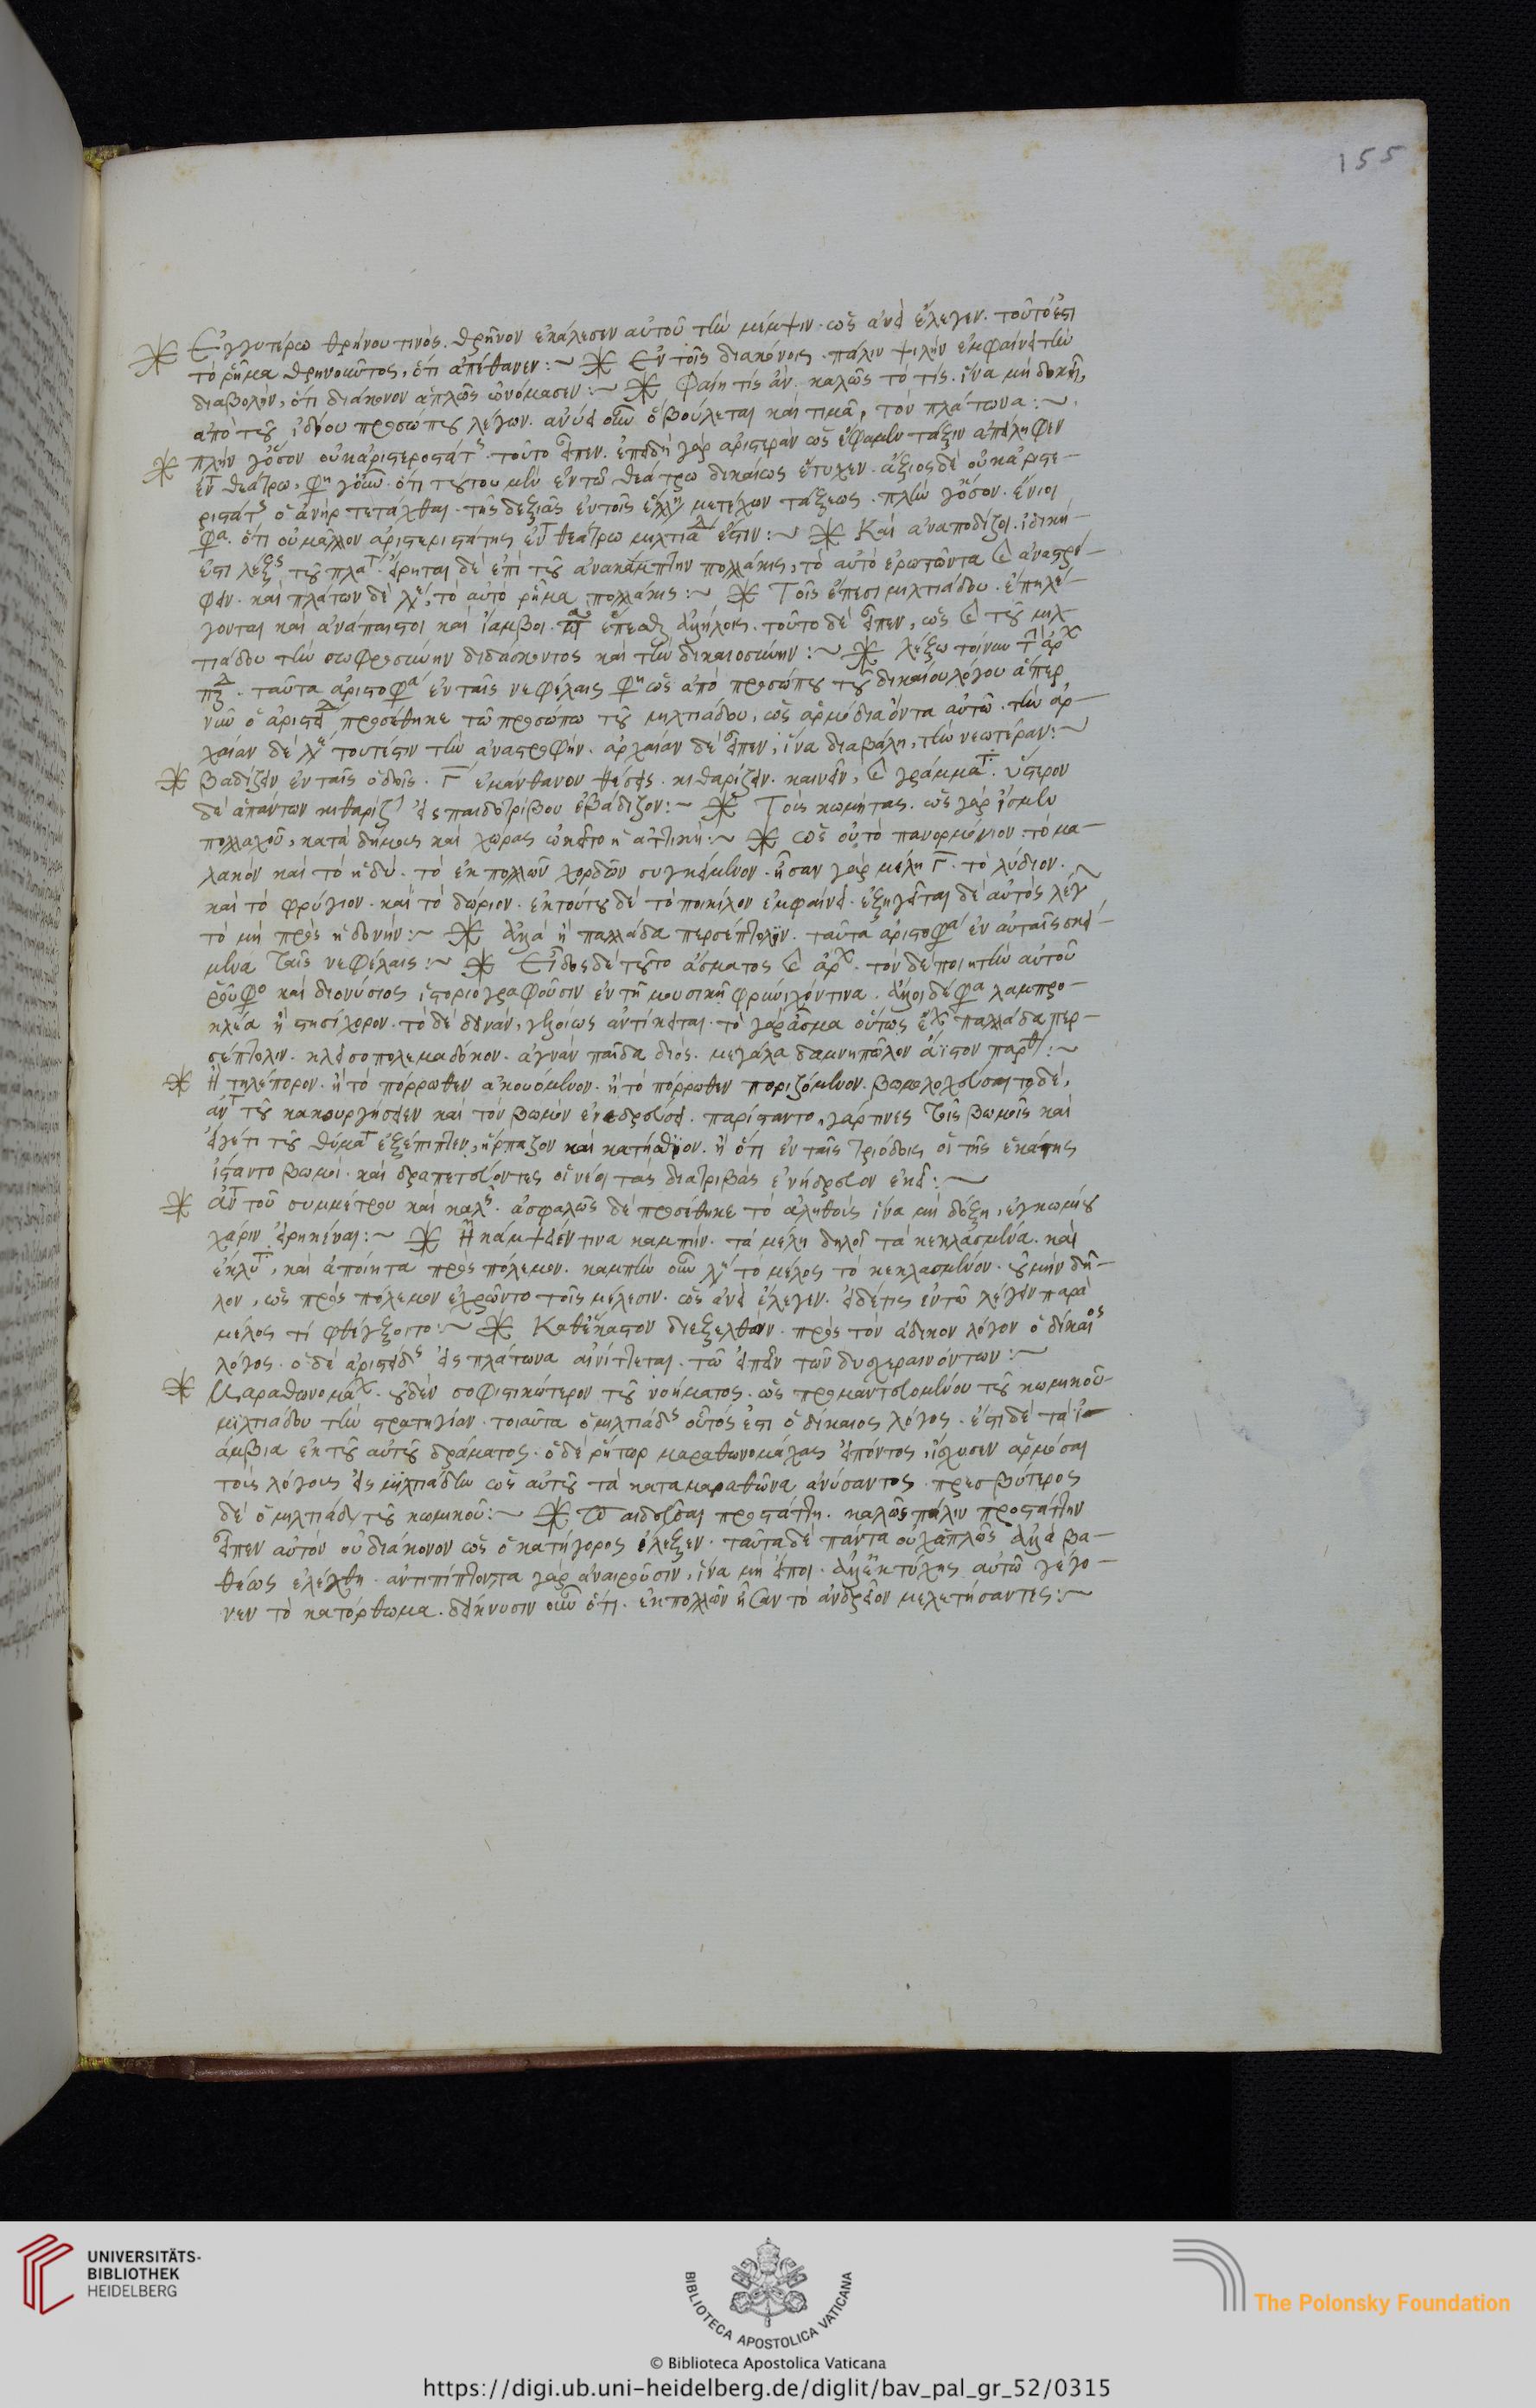 155
Ἐγγυτέρω θρήνου τινός. θρῆνον ἐκάλεσεν αὐτοῦ τὴν μέμψιν. ὡς ἂν εἰ ἔλεγεν. τοῦτό ἐστι
τὸ ῥῆμα θρηνοῦντος, ὅτι ἀπέθανεν:~ Ἐν τοῖς διακόνοις. πάλιν ψιλὴν ἐμφαίνει τὴν
διαβολὴν, ὅτι διάκονον ἁπλῶς ὠνόμασεν:~ Φαίη τίς ἄν. καλῶς τὸ τίς. ἵνα μὴ δοκῇ,
ἀπὸ τοῦ ἰδίου προσώπου λέγων. ἀνύει οὖν ὃ βούλεται καὶ τιμᾶ, τὸν πλάτωνα:~
πλὴν γ' ὅσον οὐκ ἀριστεροστάτ. τοῦτο εἶπεν. ἐπειδὴ γὰρ ἀριστερὰν ὡς ἔφαμεν τάξιν ἀπείληφεν
ἐν τ θεάτρω, φη γοῦν. ὅτι τούτου μὲν ἐν τῶ θεάτρω δικαίως ἔτυχεν. ἄξιος δὲ οὐκ ἀριστε-
ριστάτ ὁ ἀνὴρ τετάχθαι. τῆς δεξιᾶς ἐν τοῖς ἕλλη μετέχων τάξεως. πλὴν γ' ὅσον. ἔνιοι
φα. ὅτι οὐ μᾶλλον ἀριστεριστάτης ἐν τ θεάτρω μιλτιά ἐστιν:~ Καὶ ἀναποδίζοι. ἰδική
ἐστι λέξς τοῦ πλατ. εἴρηται δὲ ἐπὶ τοῦ ἀνακάμπτειν πολλάκις, τὸ αὐτὸ ἐρωτῶντα καὶ ἀναστρέ-
φειν. καὶ πλάτων δὲ λέ, τὸ αὐτὸ ῥῆμα πολλάκις:~ Τοῖς ἔπεσι μιλτιάδου. ἔπη λέ-
γονται καὶ ἀνάπαιστοι καὶ ἴαμβοι. ἕπεσθ ἀλλήλοις. τοῦτο δὲ εἶπεν, ὡς καὶ τοῦ μιλ-
τιάδου τὴν σωφροσύνην διδάσκοντος καὶ τὴν δικαιοσύνην:~ λέξω τοίνυν τ ἀρχ
π. ταῦτα ἀριστοφά ἐν ταῖς νεφέλαις φη ὡς ἀπὸ προσώπου τοῦ δικαίου λόγου ἅπερ
νῦν ὁ ἀριστεί προσέθηκε τῶ προσώπω τοῦ μιλτιάδου, ὡς ἁρμόδια ὄντα αὐτῶ. τὴν ἀρ-
χαίαν δὲ λέ τουτέστιν τὴν ἀναστροφήν. ἀρχαίαν δὲ εἶπεν, ἵνα διαβάλη, τὴν νεωτέραν:~
Βαδίζειν ἐν ταῖς ὁδοῖς. Γ ἐμάνθανον θέσεις. κιθαρίζειν. καινεῖν, καὶ γράμματ. ὕστερον
δὲ ἁπάντων κιθαρίζ εἰς παιδοτρίβου ἐβάδιζον:~ Τοὺς κωμήτας. ὡς γὰρ ἴσμεν
πολλαχοῦ, κατὰ δήμους καὶ χώρας ὠκεῖτο ἡ ἀττική:~ ὡς οὐ τὸ παναρμόνιον. τὸ μα-
λακὸν καὶ τὸ ἡδύ. τὸ ἐκ πολλῶν χορδῶν συγκείμενον. ἦσαν γὰρ μέλη Γ. τὸ λύδιον.
καὶ τὸ φρύγιον. καὶ τὸ δώριον. ἐκ τούτου δὲ τὸ ποικίλον ἐμφαίνει. ἐξηγεῖται δὲ αὐτὸς λέγ
τὸ μὴ πρὸς ἡδονήν:~ ἀλλὰ ἢ παλλάδα περσέπτολιν. ταῦτα ἀριστοφά ἐν αὐταῖς κεί-
μενα ταῖς νεφέλαις:~ Εἶδος δὲ τοῦτο ἄσματος καὶ ἀρχ. τὸν δὲ ποιητὴν αὐτοῦ
ῥοῦφο καὶ διονύσιος ἱστοριογραφοῦσιν ἐν τῆ μουσικῆ φρύνιχόν τινα. ἄλλοι δέ φα λαμπρο-
κλέα ἢ στησίχορον. τὸ δὲ δεινάν, γελοίως ἀντίκειται. τὸ γὰρ ᾆσμα οὕτως ἔχ παλλάδα περ-
σέπτολιν. κλεισοπολεμαδόκον. ἁγνὰν παῖδα διός. μεγάλα δαμνηπῶλον ἄϊστον παρθ:~
Ἢ τηλέπορον. ἢ τὸ πόρρωθεν ἀκουόμενον. ἢ τὸ πόρρωθεν ποριζόμενον. βωμολοχεύσαιτο δέ,
ἀντ τοῦ κακουργήσειεν καὶ τὸν βωμὸν ἐνεδρεύσει. παρίσταντο γάρ τινες τοῖς βωμοῖς καὶ
εἴγέ τι τοῦ θύματ ἐξέπιπτεν, ἥρπαζον καὶ κατήσθιον. ἢ ὅτι ἐν ταῖς τριόδοις οἱ τῆς ἑκάτης
ἵσταντο βωμοί. καὶ δραπετεύοντες οἱ νέοι τὰς διατριβὰς ἐνήδρευον ἐκεῖ:~
ἀντ τοῦ συμμέτρου καὶ καλ. ἀσφαλῶς δὲ προσέθηκε τὸ ἀληθοὺς ἵνα μὴ δόξη, ἐγκωμίου
χάριν εἰρηκέναι:~ Ἢ κάμψειέν τινα καμπήν. τὰ μέλη δηλοῖ τὰ κεκλασμένα. καὶ
ἔκλυτ, καὶ ἀποίητα πρὸς πόλεμον. καμπὴν οὖν λέ τὸ μέλος τὸ κεκλασμένον. οὐ μὴν δῆ-
λον, ὡς πρὸς πόλεμον ἐχρῶντο τοῖς μέλεσιν. ὡς ἂν εἰ ἔλεγεν. εἰ δέ τις ἐν τῶ λέγειν παρὰ
μέλος τί φθέγξοιτο:~ Καθέκαστον διεξελθών. πρὸς τὸν ἄδικον λόγον ὁ δίκαιος
λόγος. ὁ δὲ ἀριστείδς εἰς πλάτωνα αἰνίττεται. τῶ εἰπεῖν τῶν δυσχεραινόντων:~
Μαραθωνομάχ. οὐδὲν σοφιστικώτερον τοῦ νοήματος. ὡς προμαντευομένου τοῦ κωμικοῦ
μιλτιάδου τὴν στρατηγίαν. τοιαῦτα ὁ μιλτιάδς οὗτός ἐστι ὁ δίκαιος λόγος. ἔστι δὲ τὰ ἰ
άμβια ἐκ τοῦ αὐτοῦ δράματος. ὁ δὲ ῥήτωρ μαραθωνομάχας εἰπόντος, ἴσχυσεν ἁρμόσαι
τοὺς λόγους εἰς μιλτιάδην ὡς αὐτοῦ τὰ κατὰ μαραθῶνα ἀνύσαντος. πρεσβύτερος
δὲ ὁ μιλτιάδ τοῦ κωμικοῦ:~ Τὸ αἰδεῖσθαι προστάττη. καλῶς πάλιν προστάττειν
εἶπεν αὐτὸν οὐ διάκονον ὡς ὁ κατήγορος ἔλεξεν. ταῦτα δὲ πάντα οὐχ ἁπλῶς ἀλλὰ βα-
θέως ἐλέχθη. ἀντιπίπτοντα γὰρ ἀναιροῦσιν, ἵνα μὴ εἴποι. ἀλλ' ἐκ τύχης αὐτῶ γέγο-
νεν τὸ κατόρθωμα. δείκνυσιν οὖν ὅτι. ἐκ πολλῶν ἦσαν τὸ ἀνδρεῖον μελετήσαντες:~
UNIVERSITÄTS-
BIBLIOTHEK
HEIDELBERG
BIBLIOTECA APOSTOLICA VATICANA
The Polonsky Foundation
© Biblioteca Apostolica Vaticana
https://digi.ub.uni-heidelberg.de/diglit/bav_pal_gr_52/0315